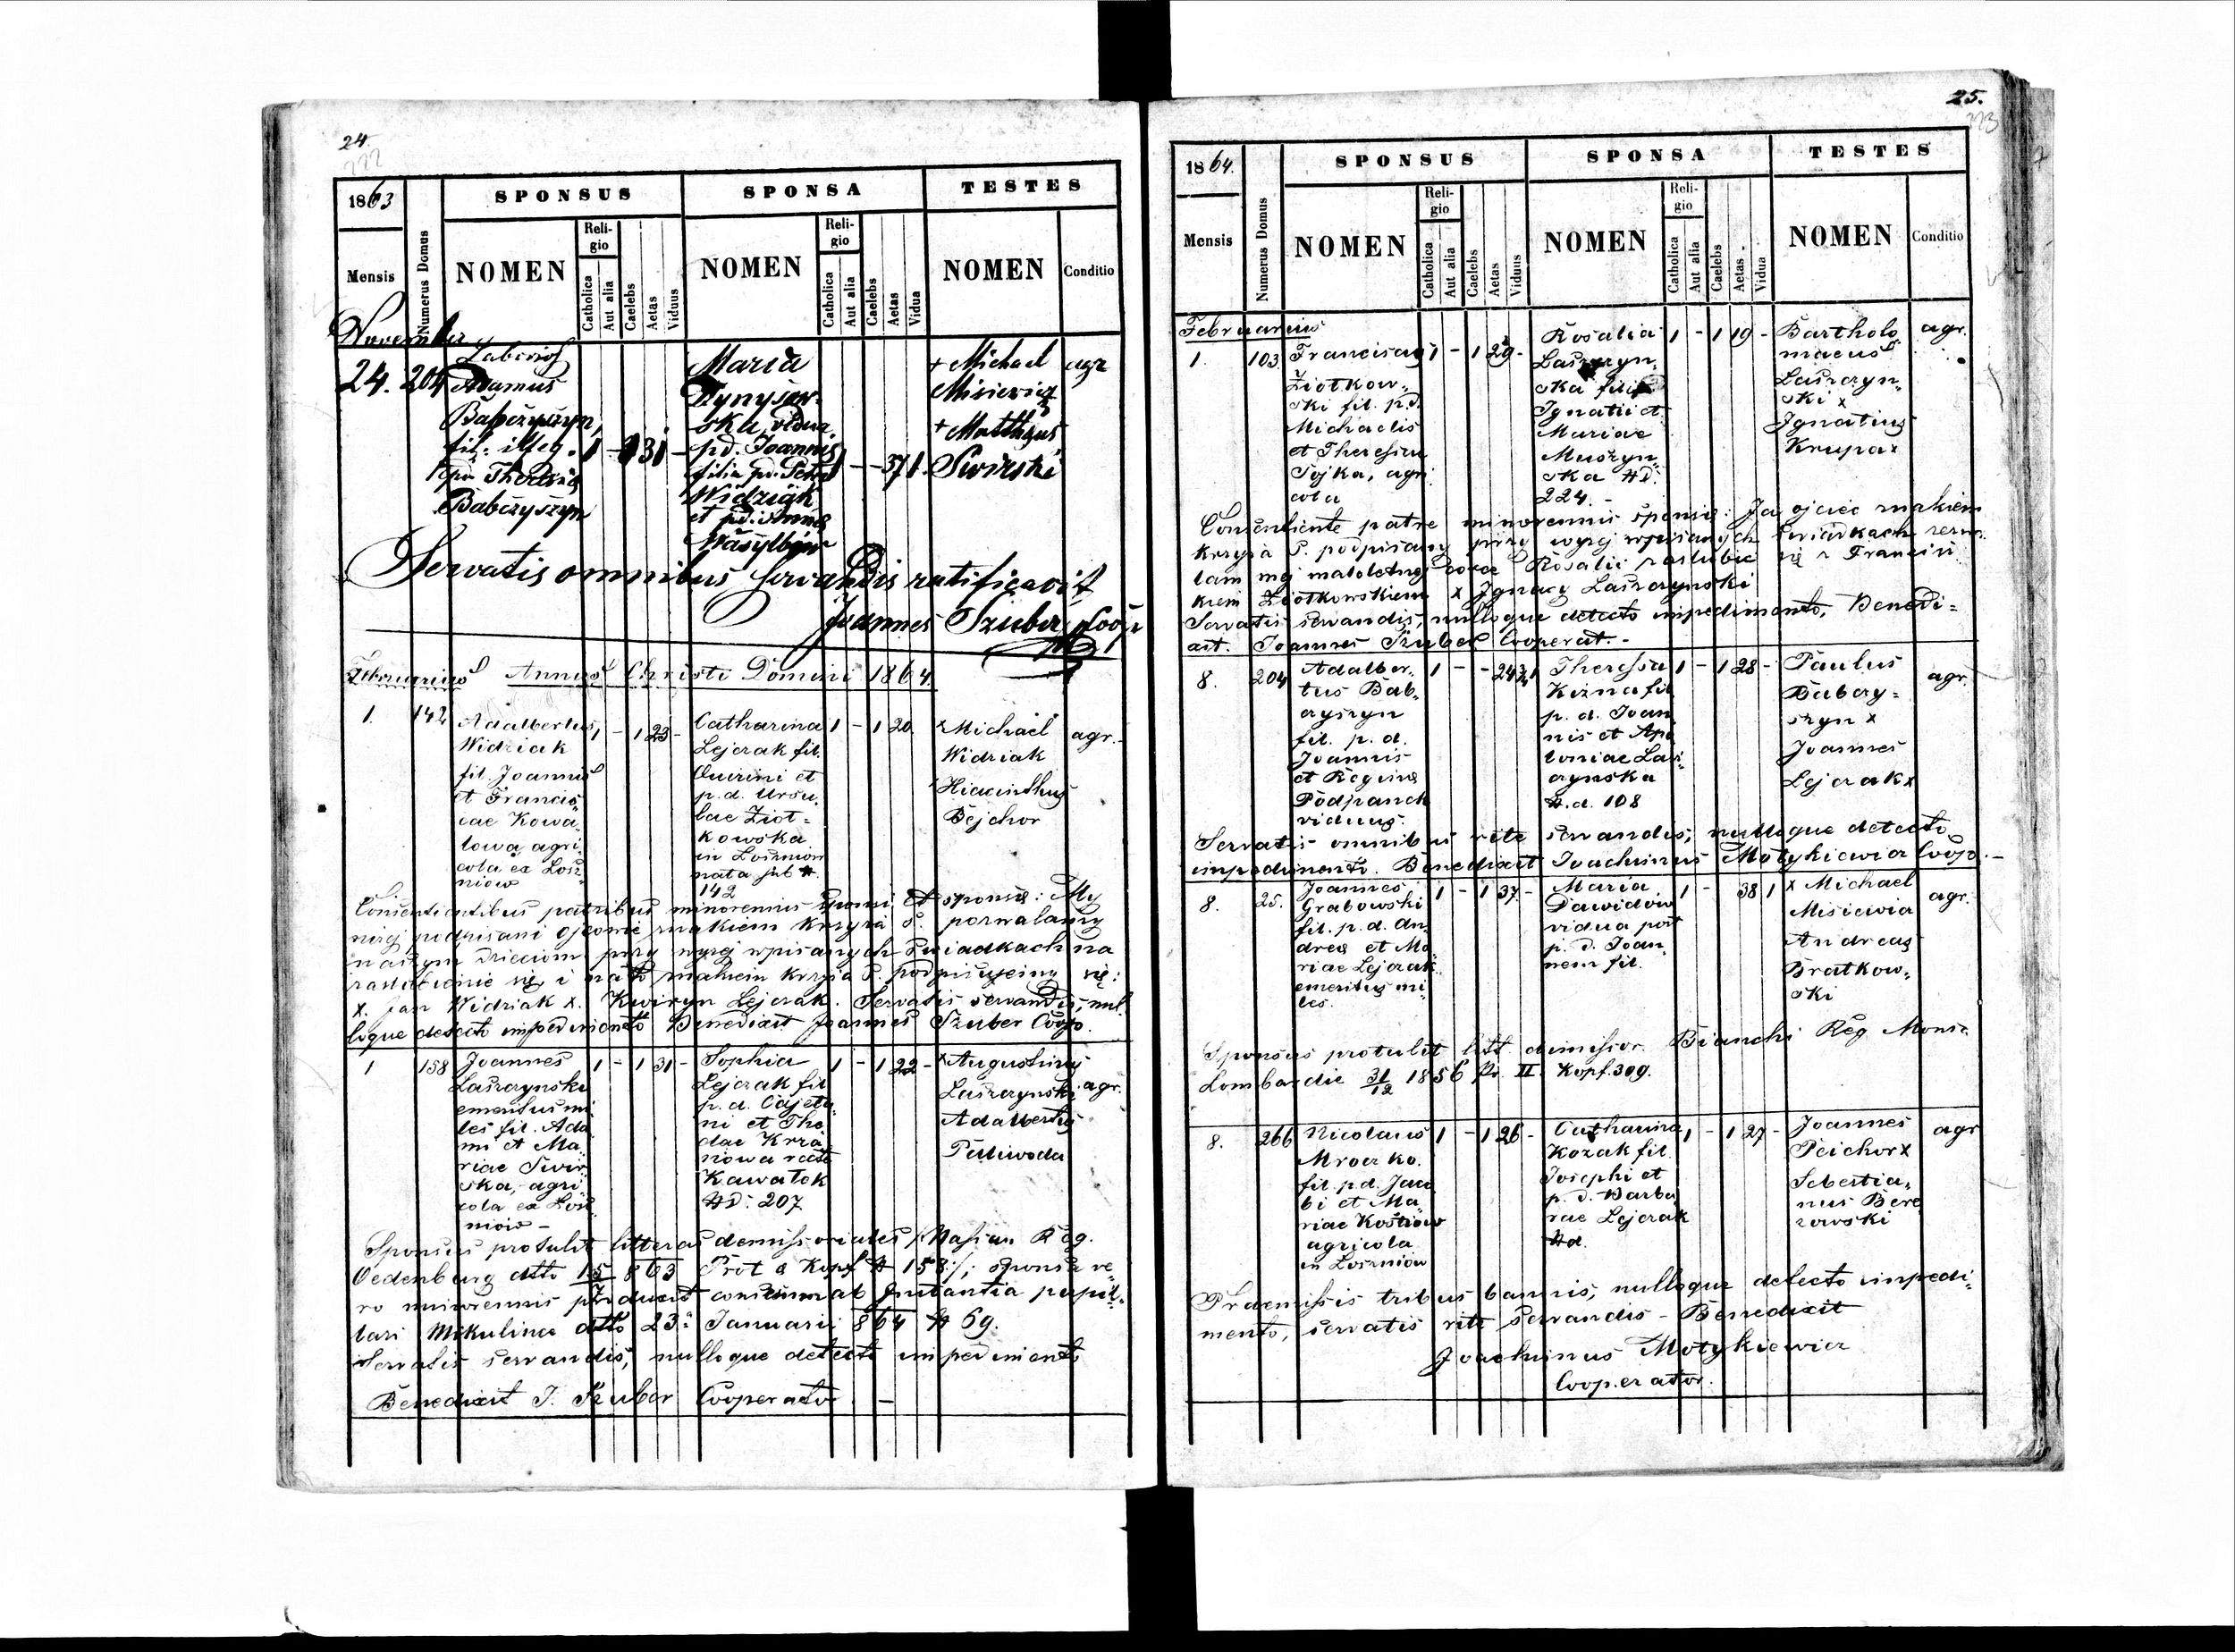 24.
222
1863
SPONSUS
SPONSA
TESTES
Mensis
Numerus Domus
NOMEN
Reli-
gio
Catholica
Aut alia
Caelebs
Aetas
Viduus
NOMEN
Reli-
gio
Catholica
Aut alia
Caelebs
Aetas
Vidua
NOMEN
Conditio
November
24. 204
Adamus
Babczyszyn,
fil. illeg.
Babczyszyn
1 - 1 31 -
Maria
vidua
p.d. Joannis
filia p.d. Petri
Widziak
et p.d. Annae
1 - - 37 1.
+ Michael
Misiewicz
+ Mattheus
Swirski
agr
Servatis omnibus servandis ratificavit
Joannes Szuber Coop.
Februarius Annus Christi Domini 1864.
1. 142
Adalbertus
Widziak
fil. Joannis
et Francis,
cae Kowa,
lowa, agri,
cola ex Losz,
niow
1 - 1 23 -
Catharina
Lejczak fil.
Quirini et
p.d. Ursu,
lae Ziot=
kowska
in Loszniow
nata sub N
142
1 - 1 20
x Michael
Widziak
x Hiacinthus
Bejchor
agr.
Consentientibus patribus minorennis sponsi et sponsae: My
niżej podpisani ojcowie znakiem krzyża S. pozwalamy
naszym dzieciom przy wyżej wpisanych świadkach na
zaślubienie się i na to znakiem krzyża S. podpisujemy się:
x. Jan Widziak x. Kwiryn Lejczak. Servatis servandis, nul,
loque detecto impedimento Benedixit Joannes Szuber Coop.
1 158
Joannes
Laszczynski
emeritus mi,
les fil. Ada
mi et Ma,
riae Swir,
ska, agri
cola ex Losz
niow -
1 - 1 31 -
Sophia
Lejczak fil
p.d. Cajeta,
ni et The
clae Krza
nowa recte
Kawalok
ND: 207
1 - 1 22 -
x Augustinus
Laszczynski
Adalbertus
Paliwoda
agr.
Sponsus protulit litteras demissoriales Reg.
Oedenburg dtto 863 Prot & Kopf N 158 /; sponsa ve,
ro minorennis produxit consensum ab Instantia pupil,
lari Mikulince dtto 23: Januarii 864 N 69.
Servatis servandis, nulloque detecto impedimento
Benedixit J. Szuber Cooperator -
25.
223
1864.
SPONSUS
SPONSA
TESTES
Mensis
Numerus Domus
NOMEN
Reli-
gio
Catholica
Aut alia
Caelebs
Aetas
Viduus
NOMEN
Reli-
gio
Catholica
Aut alia
Caelebs
Aetas
Vidua
NOMEN
Conditio
Februarius
1. 103
Franciscus
Ziotkow,
ski fil. p.d.
Michaelis
et Theresiae
Sojka, agri
cola
1 - 1 29 -
Rosalia
Laszczyn,
ska filia
Ignatii et
Mariae
Muszyn,
ska ND.
224. -
1 - 1 19 -
Bartholo
maeus
Laszczyn,
ski x
Ignatius
Krupa x
agr.
Consentiente patre minorennis sponsae: Ja ojciec znakiem
krzyża S. podpisany przy wyżej wpisanych świadkach zezwa
lam mej małoletniej córce Rosalii zaślubić się z Francisz
kiem Ziotkowskiem x Ignacy Laszczynski
Servatis servandis, nulloque detecto impedimento, Benedi=
xit. Joannes Szuber Cooperat. -
8. 204
Adalber,
tus Bab,
czyszyn
fil. p. d.
Joannis
et Reginae
Podpanek
viduus.
1 - - 24 1
Theresia
Kizna fil
p. d. Joan
nis et Apo
loniae Las,
czynska
N.d. 108
1 - 1 28 -
Paulus
Babczy=
szyn x
Joannes
Lejczak x
agr.
Servatis omnibus rite servandis, nulloque detecto
impedimento. Benedixit Joachimus Motykiewicz Coop. -
8. 25.
Joannes
Grabowski
fil. p. d. An
dreae et Ma
riae Lejczak
emeritus mi
les.
1 - 1 37 -
Maria
Dawidow
vidua post
p. d. Joan
nem fil.
1 - 38 1
x Michael
Misiewicz
Andreas
Bratkow,
ski
agr.
Sponsus protulit litt. dimissor. Bianchi Reg Monza
Lombardie 31/12 1856 Pr II. Kopf. 309.
8. 266
Nicolaus
Mroczko.
fil. p.d. Jaco
bi et Ma,
riae Kostiow
agricola
in Loszniow
1 - 1 26 -
Catharina
Kozak fil.
Josephi et
p. d. Barba
rae Lejczak
Nd.
1 - 1 27 -
Joannes
Peichor x
Sebestia,
nus Bere
zowski
agr
Praemissis tribus bannis, nulloque detecto impedi,
mento, servatis rite servandis - Benedixit
Joachimus Motykiewicz
Cooperator.